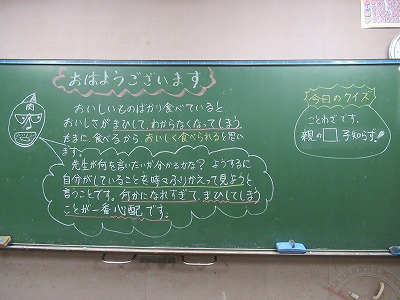 おはようございます
肉
おいしいものばかり食べていると
おいしさがまひして、わからなくなってしまう。
たまに、食べるから、おいしく食べられると思い
ます。
先生が何を言いたいか分かるかな？ようするに
自分がしていることを時々ふりかえって見ようと
言うことです。何かになれすぎて、まひしてしまう
ことが一番心配です。
今日のクイズ
ことわざです。
親の□子知らず